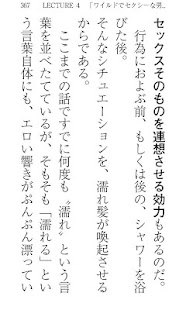 367 LECTURE 4 「ワイルドでセクシーな男」
セックスそのものを連想させる効力もあるのだ。
行為におよぶ前、もしくは後の、シャワーを浴
びた後。
そんなシチュエーションを、濡れ髪が喚起させる
からである。
ここまでの話ですでに何度も〝濡れ〟という言
葉を並べたてているが、そもそも「濡れる」とい
う言葉自体にも、エロい響きがぷんぷん漂ってい